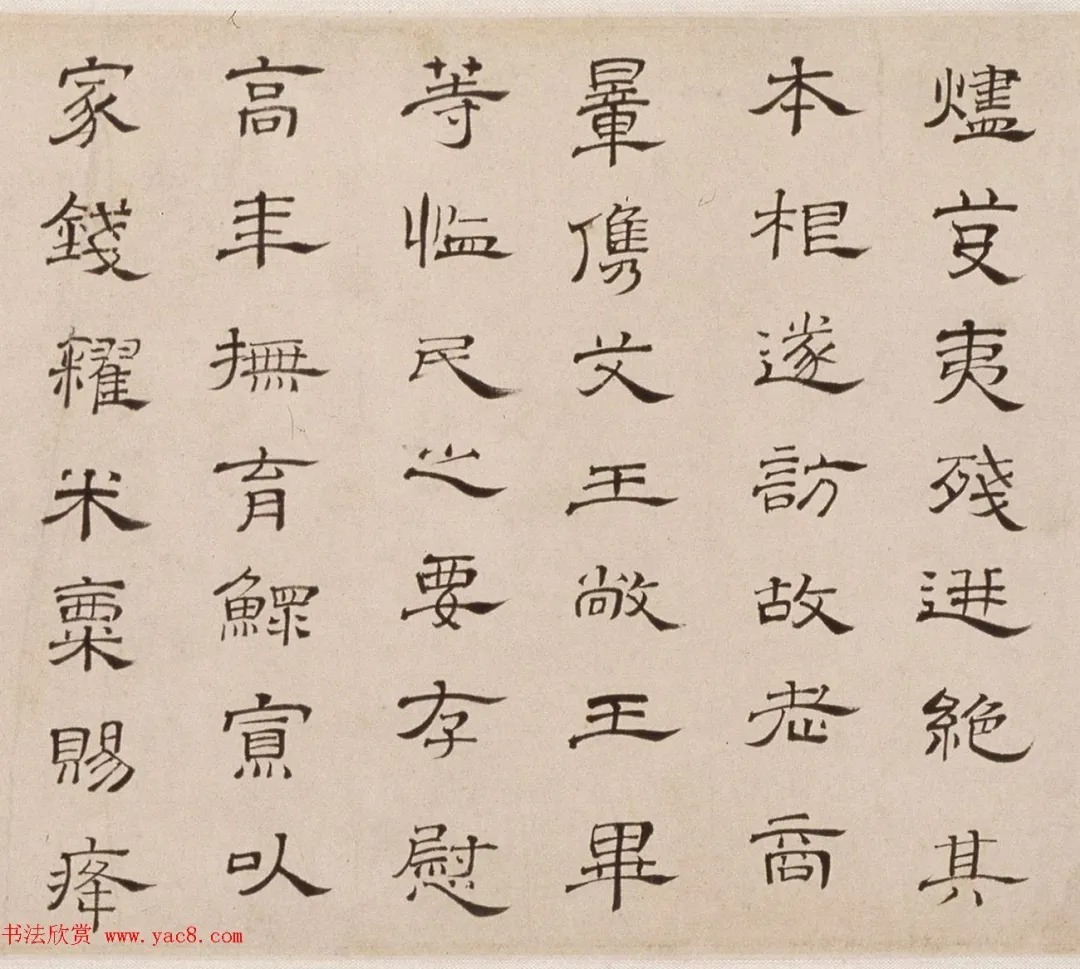 燼芟夷殘迸絶其
本相遂訪故老商
量儁艾王敞王畢
等恤民之要存慰
高年撫育鰥寡以
家錢糴米粟賜𤸇
书法欣赏 www.yac8.com